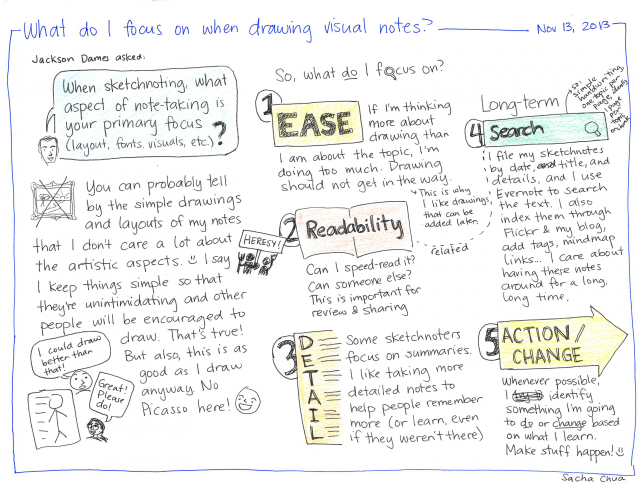 What do I focus on when drawing visual notes?
Nov 13, 2013
Jackson Dames asked:
When sketchnoting, what
aspect of note-taking is
your primary focus
(layout, fonts, visuals, etc.)?
You can probably tell
by the simple drawings
and layouts of my notes
that I don't care a lot about
the artistic aspects. I say
I keep things simple so that
they're unintimidating and other
people will be encouraged to
draw. That's true!
But also, this is as
good as I draw
anyway. No
Picasso here!
HERESY!
I could draw
better than
that!
Great!
Please
do!
So, what do I focus on?
1
EASE
If I'm thinking
more about
drawing than
I am about the topic, I'm
doing too much. Drawing
should not get in the way.
This is why
I like drawings
that can be
added later.
2
Readability
Can I speed-read it?
Can someone else?
This is important for
review & sharing
related
3
DETAIL
Some sketchnoters
focus on summaries.
I like taking more
detailed notes to
help people remember
more (or learn, even
if they weren't there)
Long-term
so,
simple
handwriting,
one topic per
page,
page
per
4
Search
I file my sketchnotes
by date, title, and
details, and I use
Evernote to search
the text. I also
index them through
Flickr & my blog,
add tags, mindmap
links... I care about
having these notes
around for a long,
long time.
5
ACTION/
CHANGE
Whenever possible,
I identify
something I'm going
to do or change based
on what I learn.
Make stuff happen!
Sacha Chua